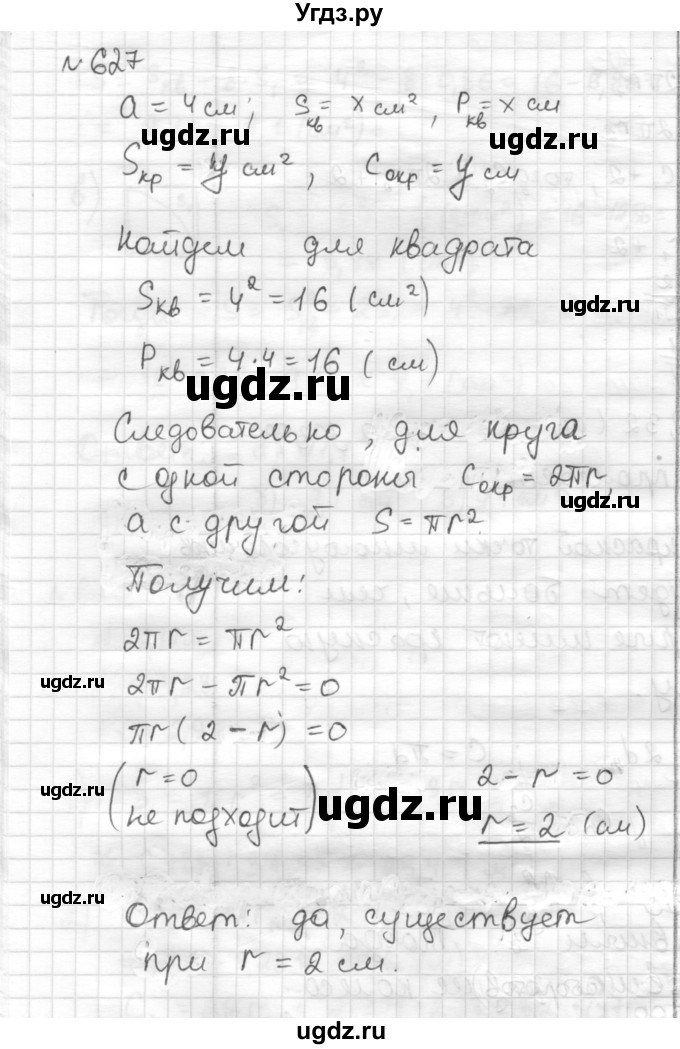 Угдз.ру
№627
a = 4 см; Sкв = x см², Pкв = x см
ugdz.ru ugdz.ru
Sкр = y см², Cокр = y см
Найдем для квадрата
Sкв = 4² = 16 (см²)
ugdz.ru
Pкв = 4·4 = 16 (см)
ugdz.ru
Следовательно, для круга
с одной стороны Cокр = 2πr,
ugdz.ru
а с другой S = πr²
Получим:
2πr = πr²
ugdz.ru
2πr - πr² = 0
πr(2 - r) = 0
(r = 0 2 - r = 0
ugdz.ru ugdz.ru
не подходит) r = 2 (см)
ugdz.ru
Ответ: да, существует
при r = 2 см.
ugdz.ru